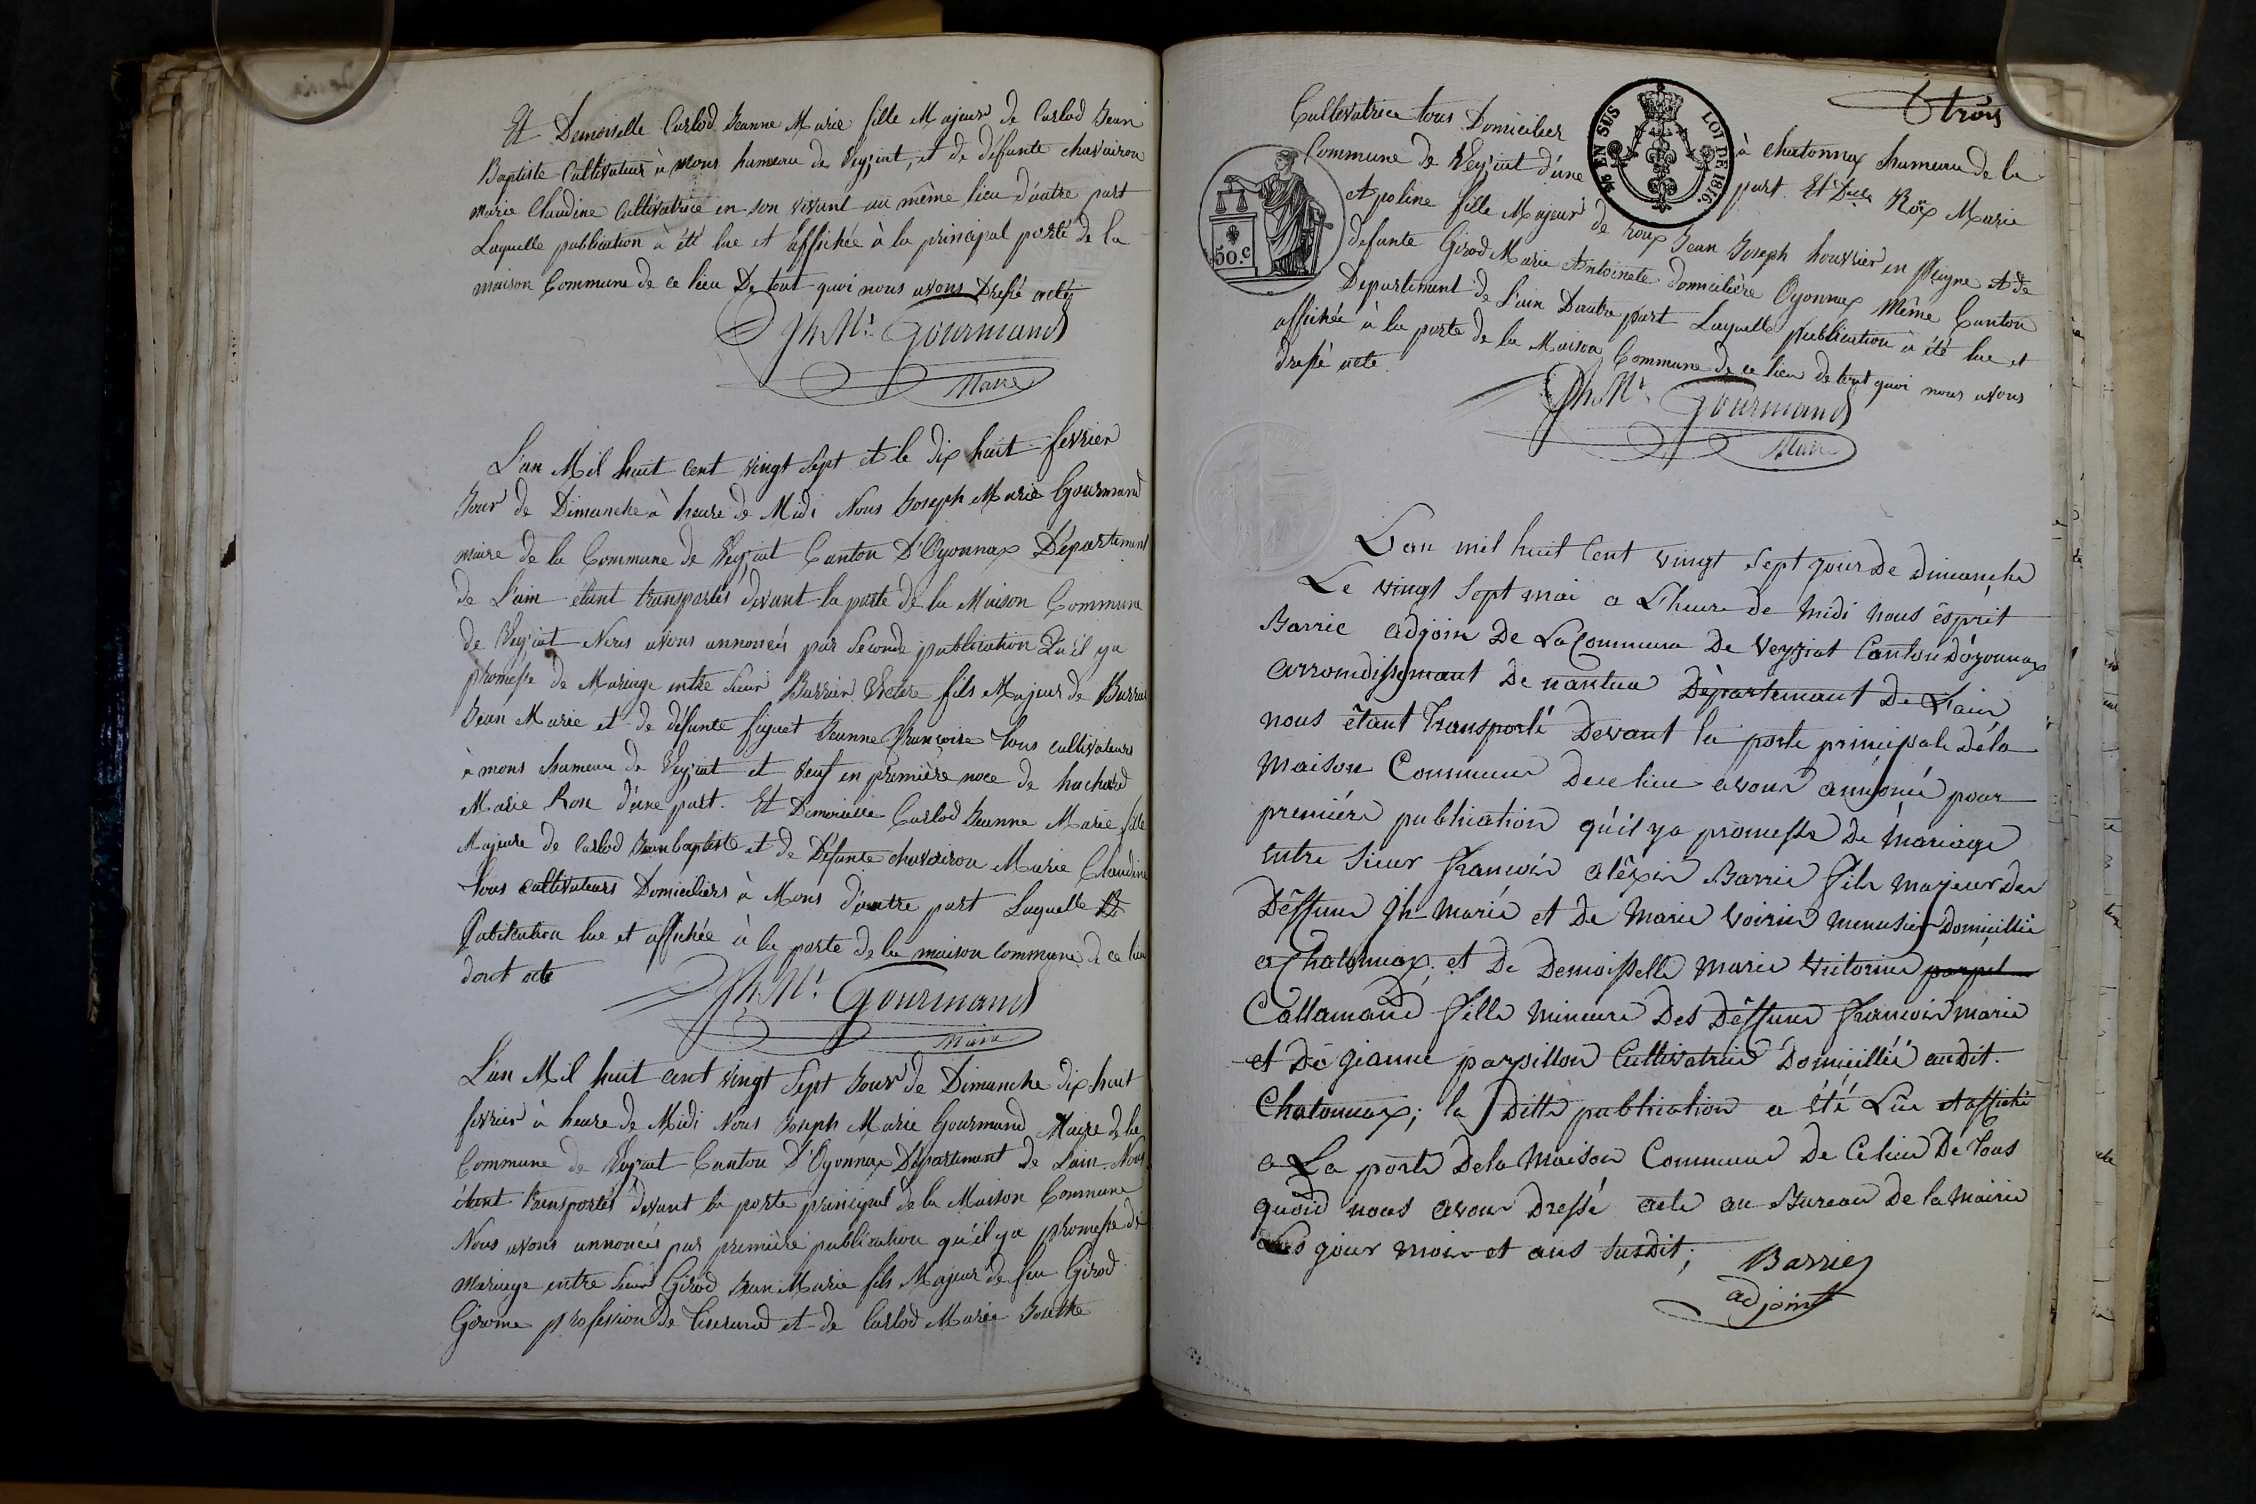 Et Demoiselle Carlod Jeanne Marie fille Majeur de Carlod Jean
Baptiste Cultivateur à mons hameau de Veyziat, et de défunte chavairon
marie Claudine Cultivatrice en son vivant au même lieu d'autre part
Laquelle publication à été lue et affichée à la principal porte de la
maison Commune de ce lieu De tout quoi nous avons Dressé acte
Jh. Mie. Gourmand
Maire
L'an Mil huit Cent vingt Sept et le dix huit fevrier
Jour de Dimanche à heure de Midi Nous Joseph Marie Gourmand
maire de la Commune de Veyziat Canton D'Oyonnax Département
de L'ain étant transportés devant la porte de la Maison Commune
de Veyziat Nous avons annoncés par Seconde publication Qu'il ya
promesse de Mariage entre Sieur Barrier Victor fils Majeur de
Jean Marie et de défunte Jeanne Françoise tous cultivateurs
à mons hameau de Veyziat et veuf en première noce de
Marie Rose d'une part. Et Demoiselle Carlod Jeanne Marie fille
Majeure de Carlod Jean baptiste et de Défunte chavairon Marie Claudine
tous cultivateurs Domiciliers à Mons d'autre part Laquelle
Publication lue et affichée à la porte de la maison commune de ce lieu
dont acte
Jh. Mie. Gourmand
Maire
L'an Mil huit cent vingt Sept Jour de Dimanche dix huit
fevrier à heure de Midi Nous Joseph Marie Gourmand Maire de la
Commune de Veyziat Canton D'Oyonnax Département de Lain Nous
étant transportés devant la porte principal de la Maison Commune
Nous avons annoncés par première publication qu'il ya promesse de
mariage entre Sieur Girod Jean Marie fils Majeur de feu Girod
Gerome profession De tiserand et de Carlod Marie
trois
Cultivatrice tous Domicilier à chatonnax hameau de la
Commune de Veyziat d'une part. Et Dlle Rôx Marie
Apoline fille Majeur de roux Jean Joseph houvrier en Peigne et de
defunte Girod Marie Antoinete domicilière Oyonnax Même Canton
Département de L'ain Dautre part Laquelle publication à été lue et
affichée à la porte de la Maison Commune de ce lieu de tout quoi nous avons
dressé acte.
¼ EN SUS LOI DE 1816.
50.c
Jh. Mie. Gourmand
Maire
L'an mil huit Cent vingt Sept jour De dimanche
Le vingt Sept mai a L'heure de midi nous ésprit
Barrie adjoin De La Commune De Veyziat Canton d'oyonnax
arrondissemant De nantua Dèpartemant De L'ain
nous êtant Transporté Devant la porte principale dela
Maison Commune Dece lieu avons annoncé pour
première publication qu'il ya promesse De mariage
entre Sieur françois alêxis Barrie fils majeur des
Dèffune Jh Marie et De Marie Voirin menusier Domicillié
a Chatonnax; et De Demoisselle Marie Victorine
Callamand fille mineure Des Dèffune françois marie
et De jianne parsillon Cultivatrice Domicillée audit.
Chatonnax; la ditte publication a été Lûe et affiché
a La porte Dela Maison Commune De Ce lieu De tous
quoid nous avons Dressé acte au Bureau De la Mairie
Les jour mois et ans Susdit;
Barrie
adjoint